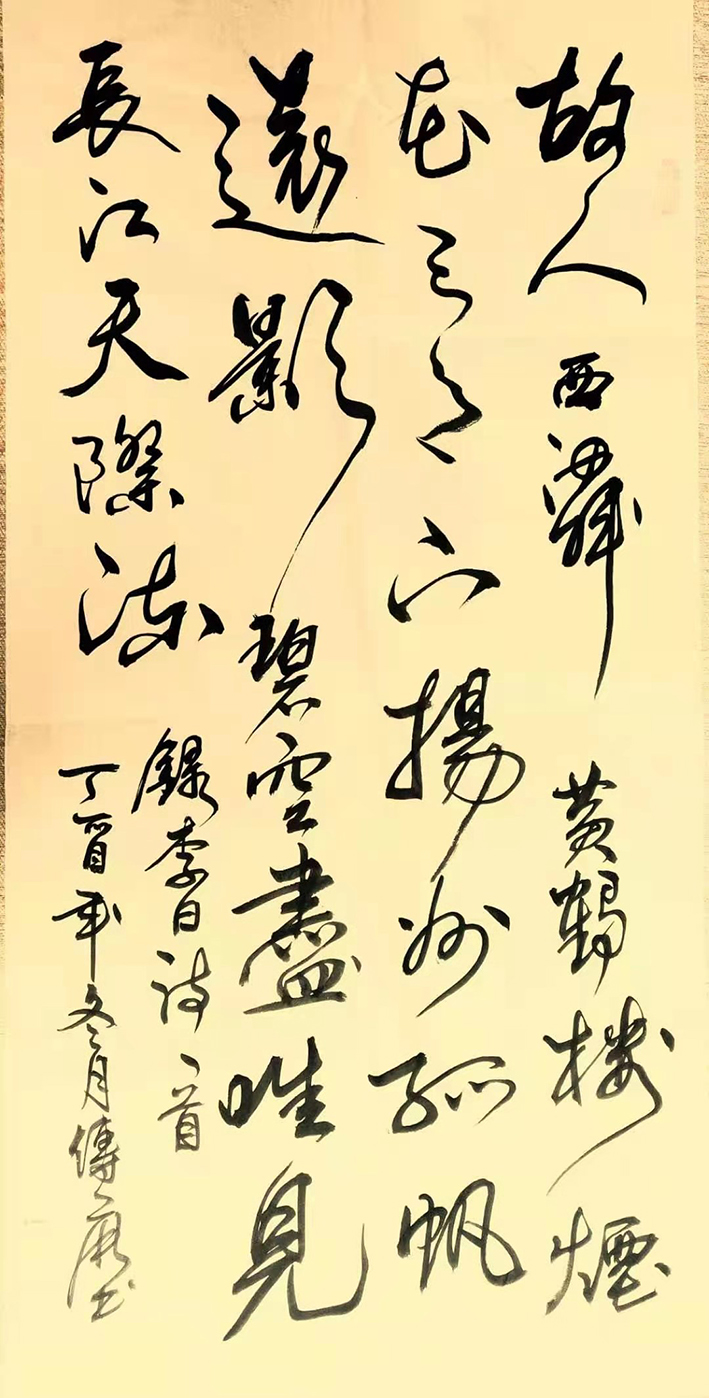 故人西辭黃鶴樓煙
花三月下揚州孤帆
遠影碧空盡唯見
長江天際流
錄李白詩一首
丁酉年冬月傅